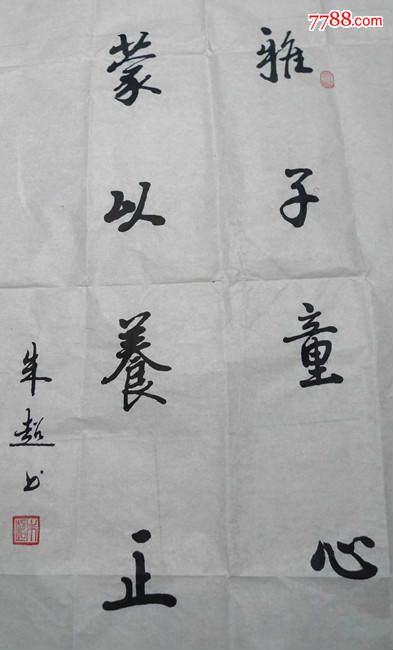 7788.com
雅子童心
蒙以養正
朱超书